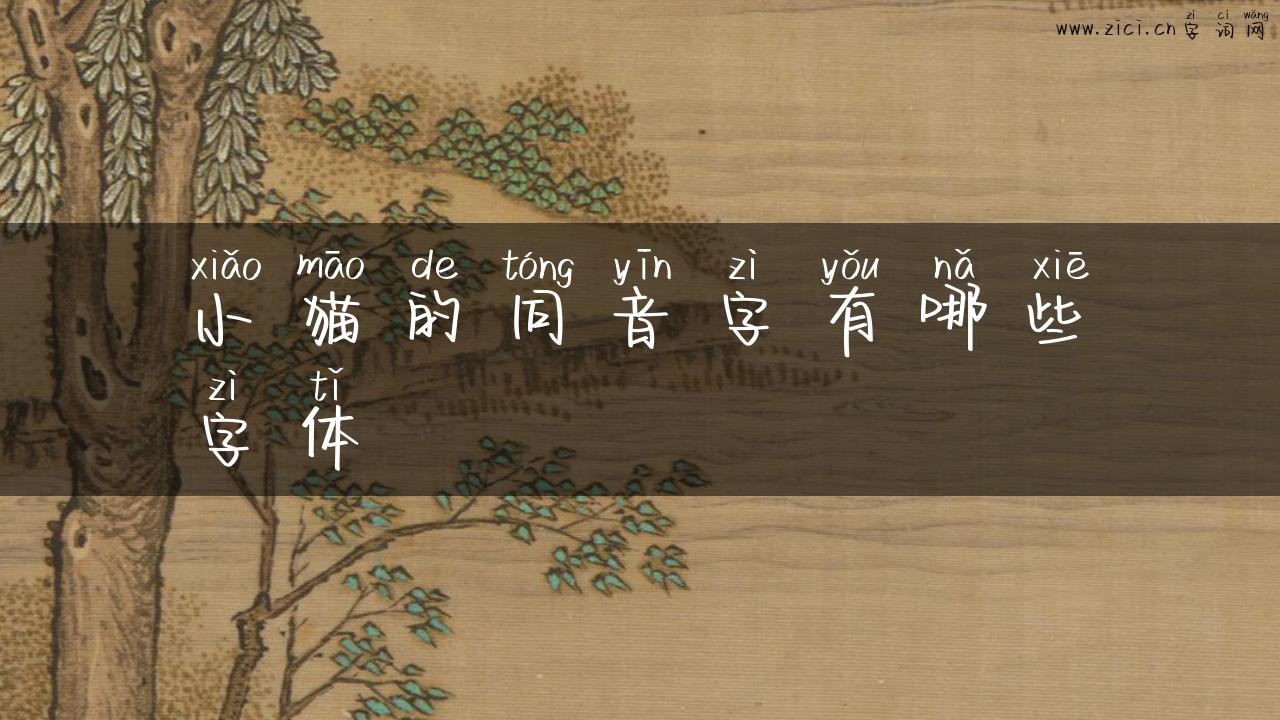 zì cí wǎng
www.zici.cn 字词网
xiǎo māo de tóng yīn zì yǒu nǎ xiē
小猫的同音字有哪些
zì tǐ
字体